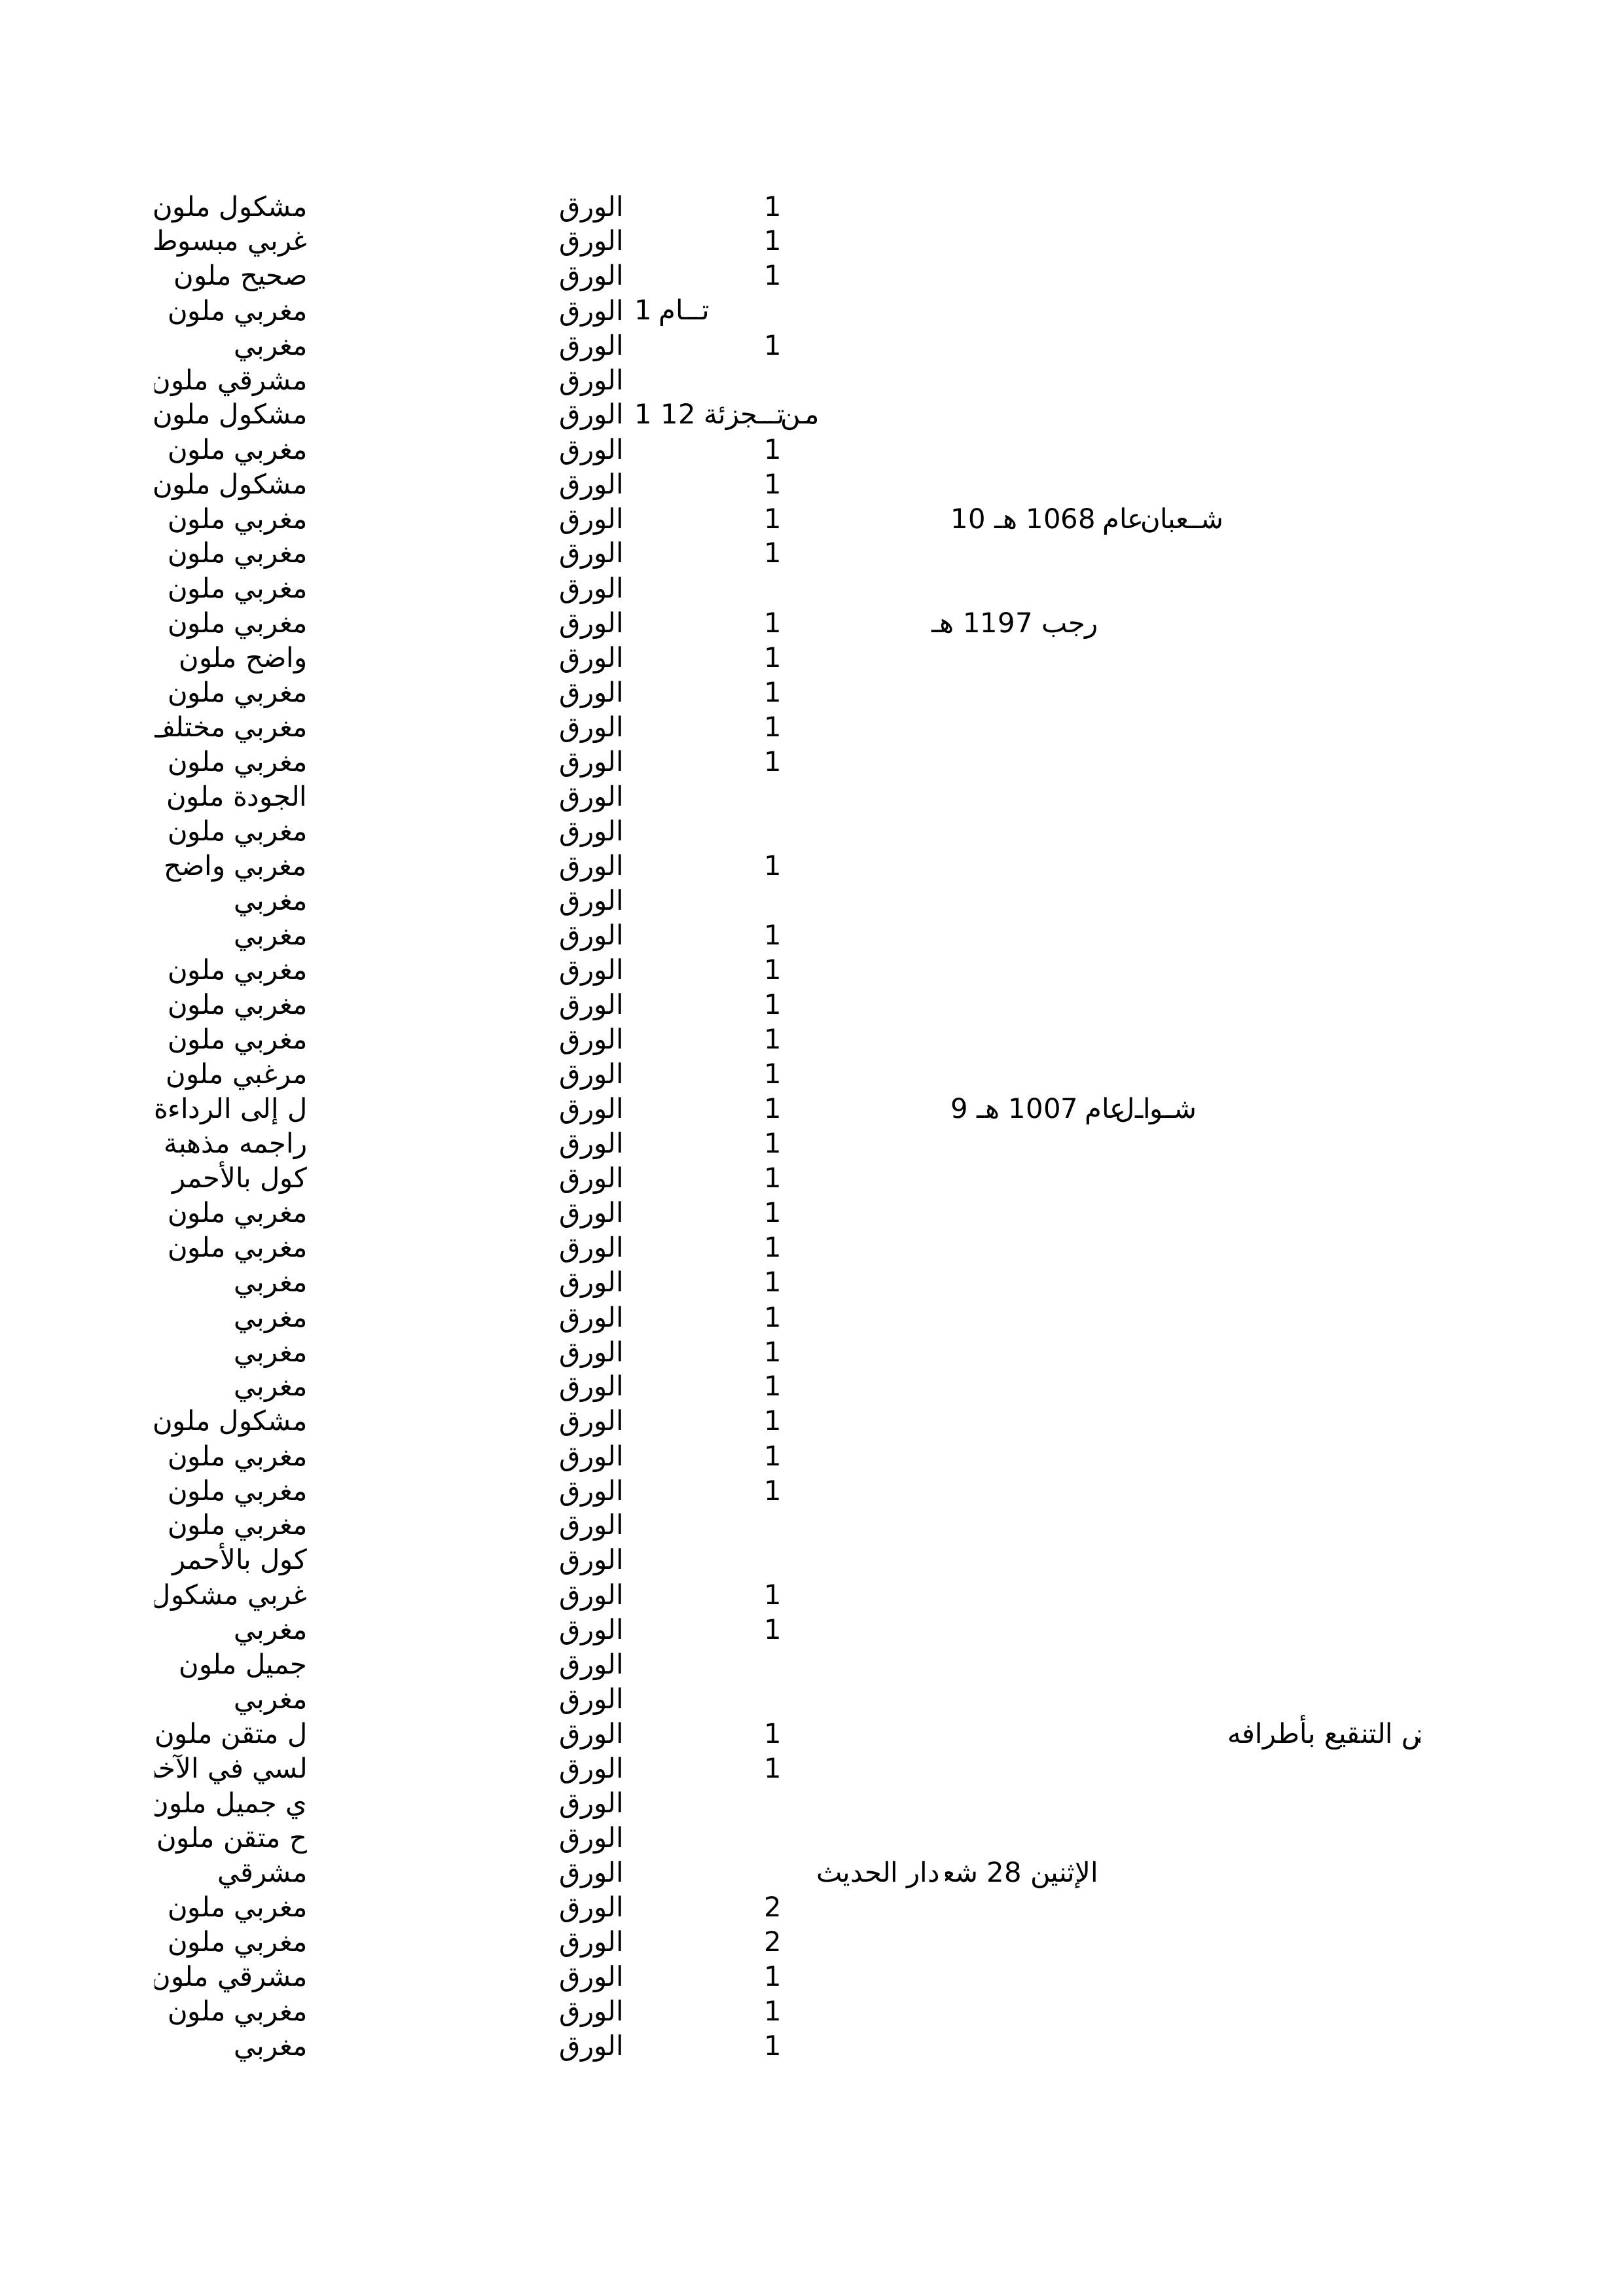 مشكول ملون الورق 1
غربي مبسوط الورق 1
صحيح ملون الورق 1
مغربي ملون الورق 1 تــام
مغربي الورق 1
مشرقي ملون الورق
مشكول ملون الورق 1 من تــجزئة 12
مغربي ملون الورق 1
مشكول ملون الورق 1
مغربي ملون الورق 1 10 شــعبان عام 1068 هـ
مغربي ملون الورق 1
مغربي ملون الورق
مغربي ملون الورق 1 رجب 1197 هـ
واضح ملون الورق 1
مغربي ملون الورق 1
مغربي مختلف الورق 1
مغربي ملون الورق 1
الجودة ملون الورق
مغربي ملون الورق
مغربي واضح الورق 1
مغربي الورق
مغربي الورق 1
مغربي ملون الورق 1
مغربي ملون الورق 1
مغربي ملون الورق 1
مرغبي ملون الورق 1
ل إلى الرداءة الورق 1 9 شــوال عام 1007 هـ
راجمه مذهبة الورق 1
كول بالأحمر الورق 1
مغربي ملون الورق 1
مغربي ملون الورق 1
مغربي الورق 1
مغربي الورق 1
مغربي الورق 1
مغربي الورق 1
مشكول ملون الورق 1
مغربي ملون الورق 1
مغربي ملون الورق 1
مغربي ملون الورق
كول بالأحمر الورق
غربي مشكول الورق 1
مغربي الورق 1
جميل ملون الورق
مغربي الورق
ل متقن ملون الورق 1 ض التنقيع بأطرافه
لسي في الآخ الورق 1
ي جميل ملون الورق
ح متقن ملون الورق
مشرقي الورق دار الحديث الإثنين 28 شع
مغربي ملون الورق 2
مغربي ملون الورق 2
مشرقي ملون الورق 1
مغربي ملون الورق 1
مغربي الورق 1